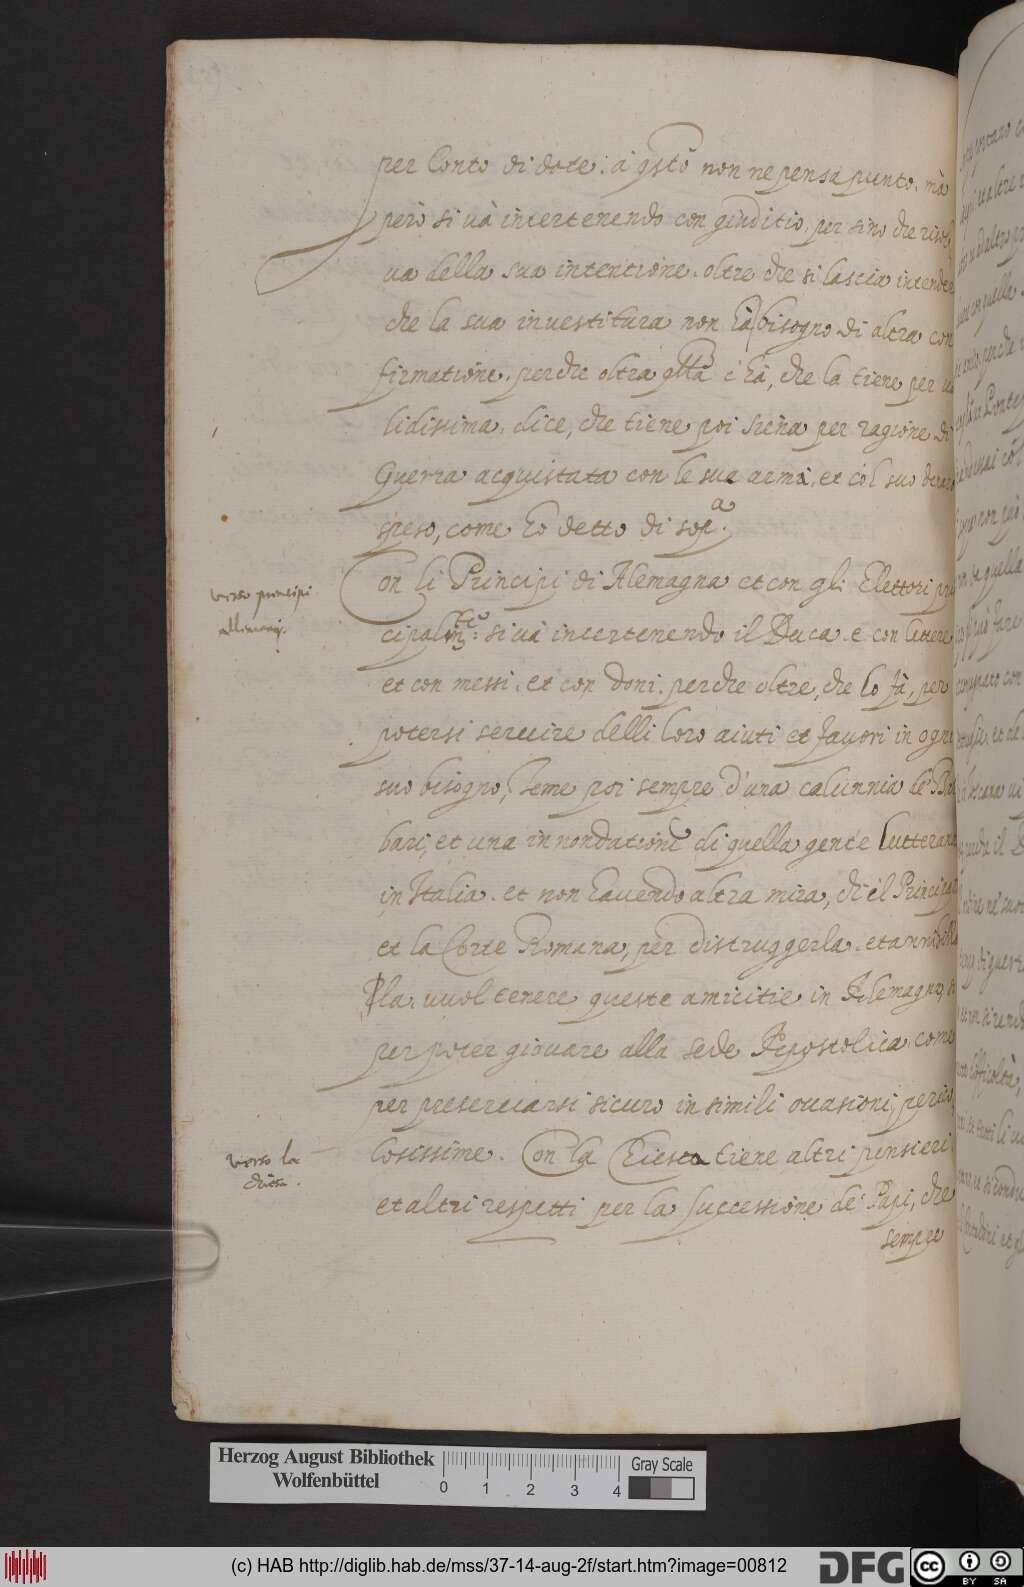 per Conto di dote: à q̃sto non ne pensa punto, mà
però si và intertenendo con giuditio, per sino che risol
ua della sua intentione. oltre che si lascia intender
che la sua inuestitura non hà bisogno di altra con
firmatione, perche oltra q̃lla c hà, che la tiene per ua
lidissima. dice, che tiene poi Siena per ragione di
Guerra acquistata con le sua armi, et col suo
speso, come ho detto di sop.ª
Con li Principi di Alemagna et con gli Elettori prin
verso principi
Allimani.
cipalm.te si và intertenendo il Duca e con lettere
et con messi, et con doni. perche oltre, che lo fà, per
potersi seruire delli loro aiuti et fauori in ogni
suo bisogno, teme poi sempre d'una calunnia de Bar
bari, et una innondatione di quella gente lutterana
in Italia. et non hauendo altra mira, ch'il Principato
et la Corte Romana, per distruggerla. et annichilar
la. uuol tenere queste amicitie in Alemagna,
per poter giouare alla sede Apostolica come
per preseruarsi sicuro in simili occasioni, perico
losissime. Con la Chiesa tiene altri pensieri,
verso la
chiesa.
et altri respetti per la successione de Papi, che
sempre
Herzog August Bibliothek
Wolfenbüttel
0 1 2 3 4
Gray Scale
(c) HAB http://diglib.hab.de/mss/37-14-aug-2f/start.htm?image=00812
DFG
cc BY SA